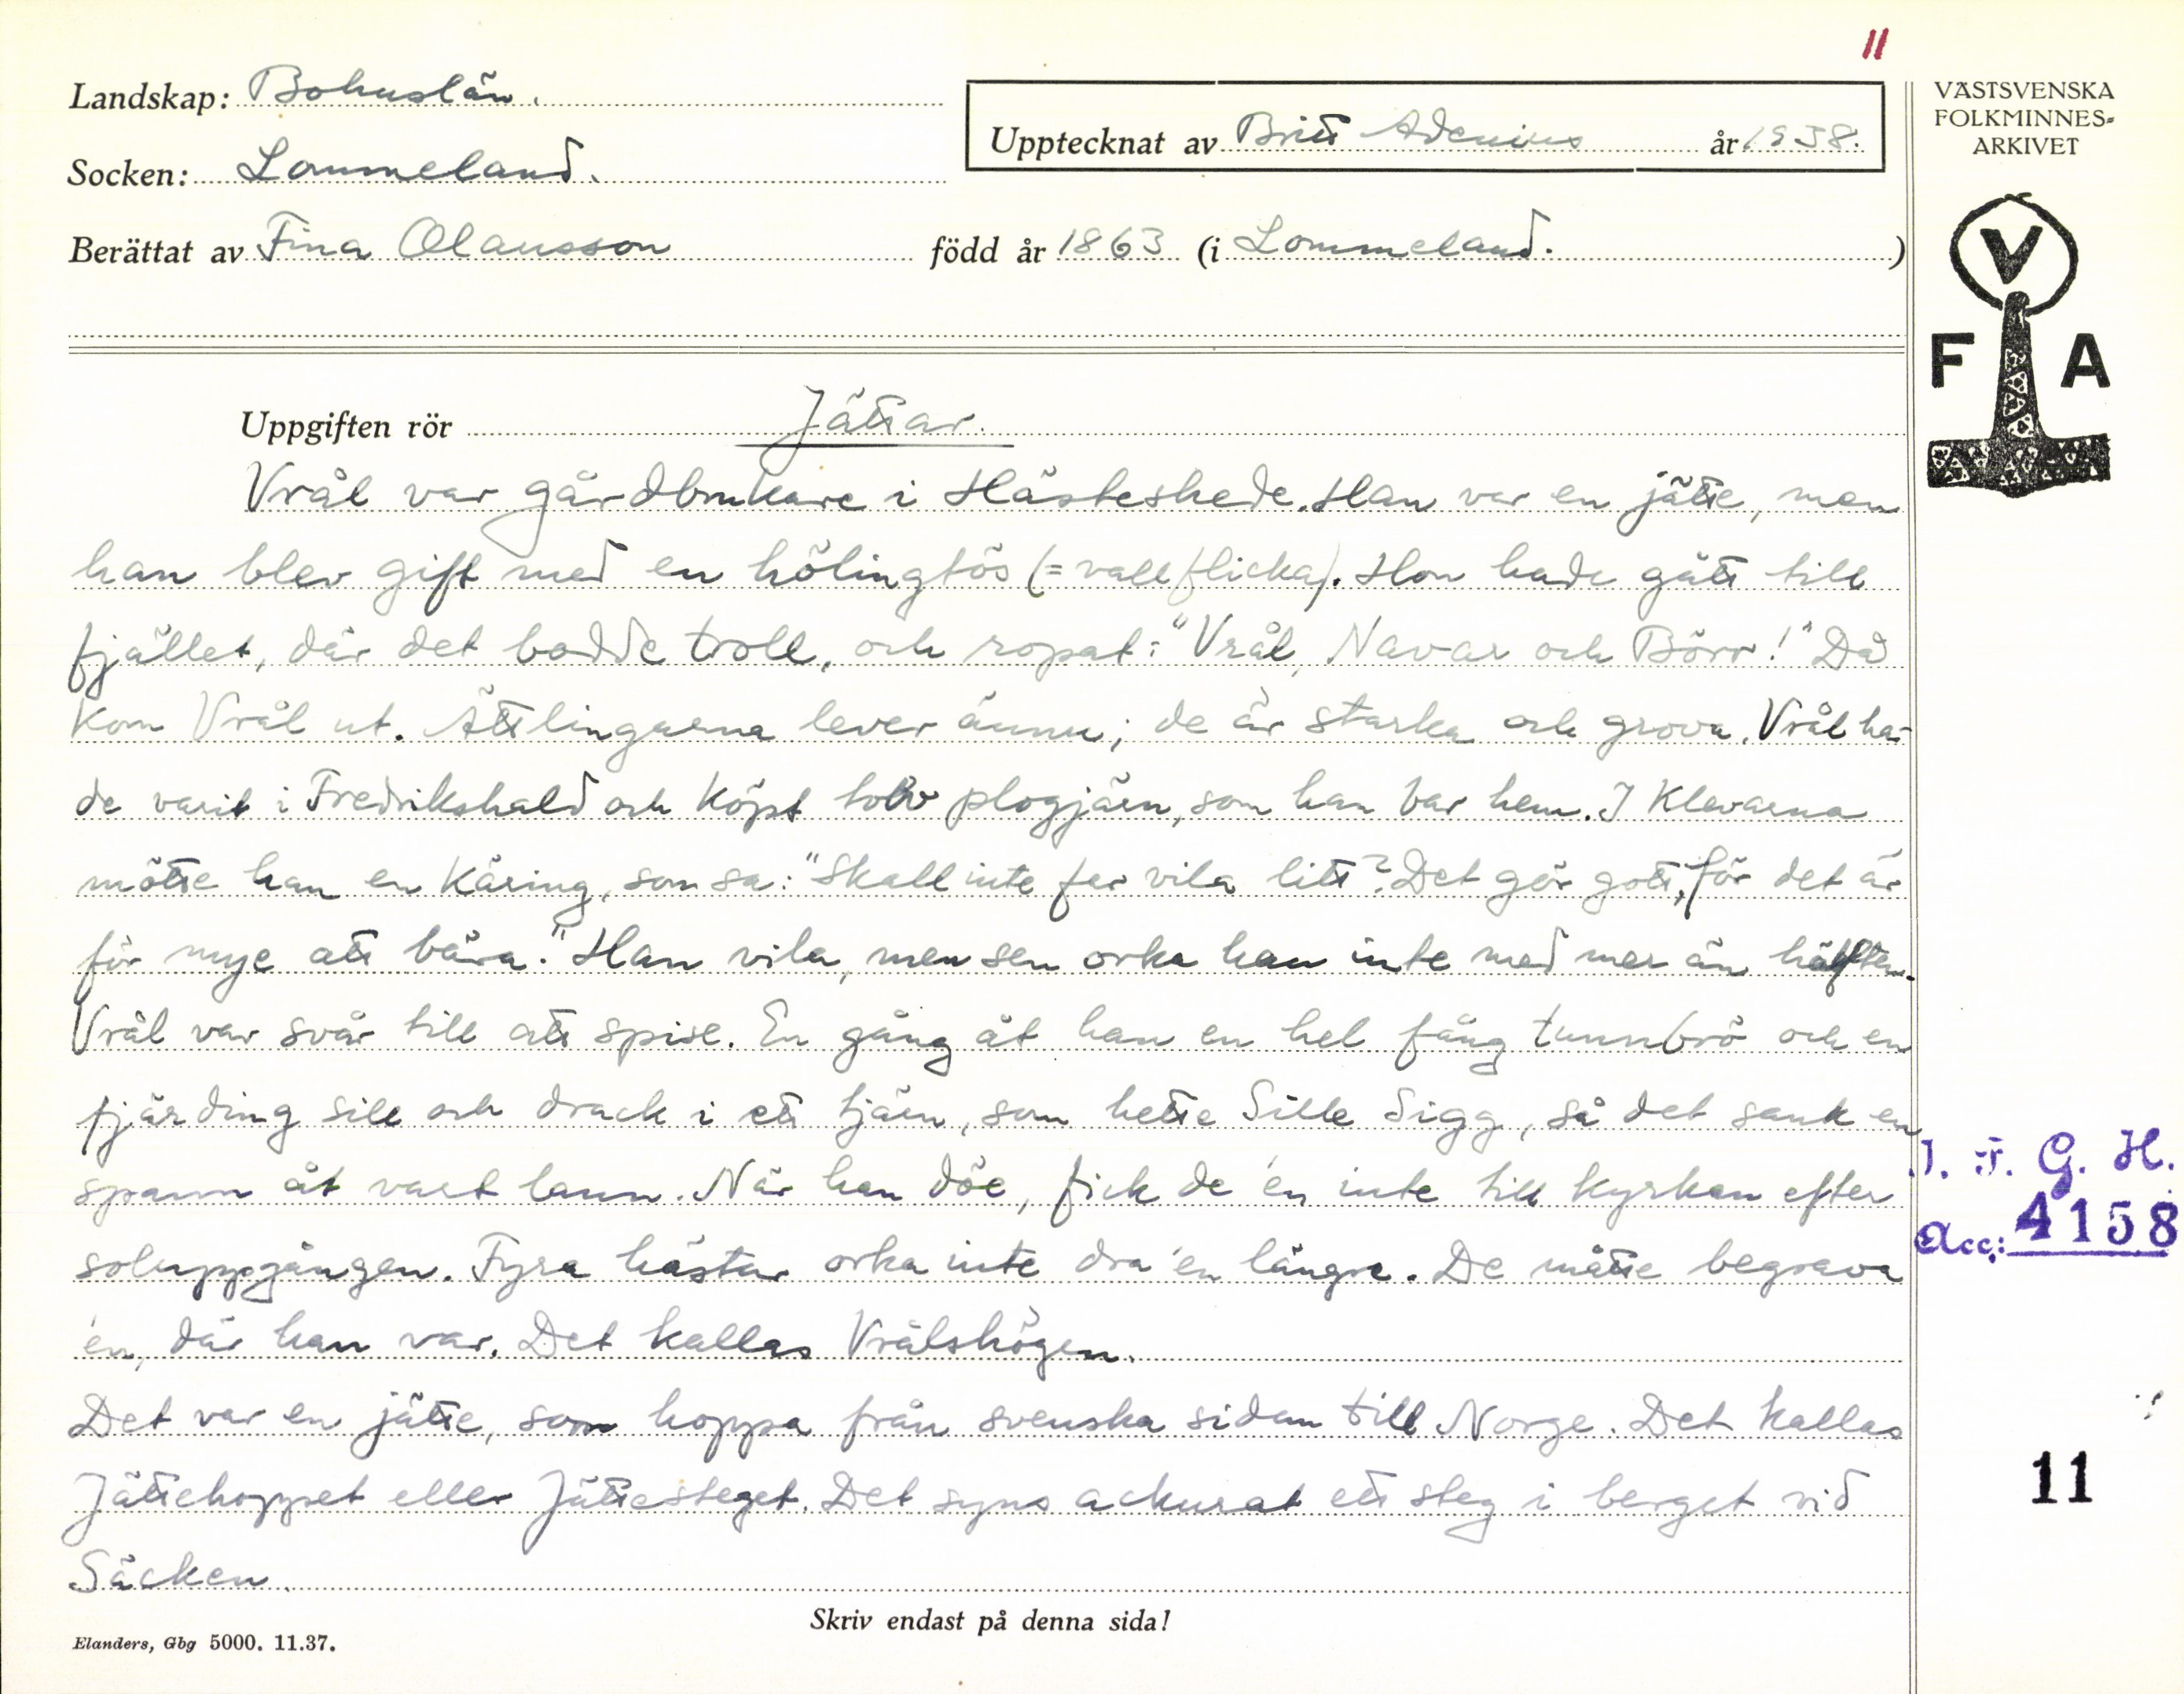 11
Landskap: Bohuslän.
VÄSTSVENSKA
FOLKMINNES-
ARKIVET
Upptecknat av Britt Adenius år 1938.
Socken: Lommeland.
Berättat av Fina Olausson född år 1863 (i Lommeland. )
V
F A
Uppgiften rör Jättar.
Vrål var gårdbrukare i Hästeskede. Han var en jätte, men
han blev gift med en hölingtös (= vallflicka). Hon hade gått till
fjället, där det bodde troll, och ropat: "Vrål, Navar och Börr!" Då
kom Vrål ut. Ättlingarna lever ännu; de är starka och grova. Vrål ha-
de varit i Fredrikshald och köpt tolv plogjärn, som han bar hem. I Klevarna
mötte han en käring, som sa: "Skall inte far vila litt? Det gör gott, för det är
för mye att bära." Han vila, men sen orka han inte med mer än hälften.
Vrål var svår till att spise. En gång åt han en hel fång tunnbrö och en
fjärding sill och drack i ett tjärn, som hette Sille Sigg, så det sank en
spann åt vart lann. När han döe, fick de 'en inte till kyrkan efter
soluppgången. Fyra hästar orka inte dra 'en längre. De måtte begrava
'en, där han var. Det kallas Vrålshögen.
Det var en jätte, som hoppa från svenska sidan till Norge. Det kallas
Jättehoppet eller Jättesteget. Det syns ackurat ett steg i berget vid
Säcken.
I. F. G. H.
Acc: 4158
11
Skriv endast på denna sida!
Elanders, Gbg 5000. 11.37.